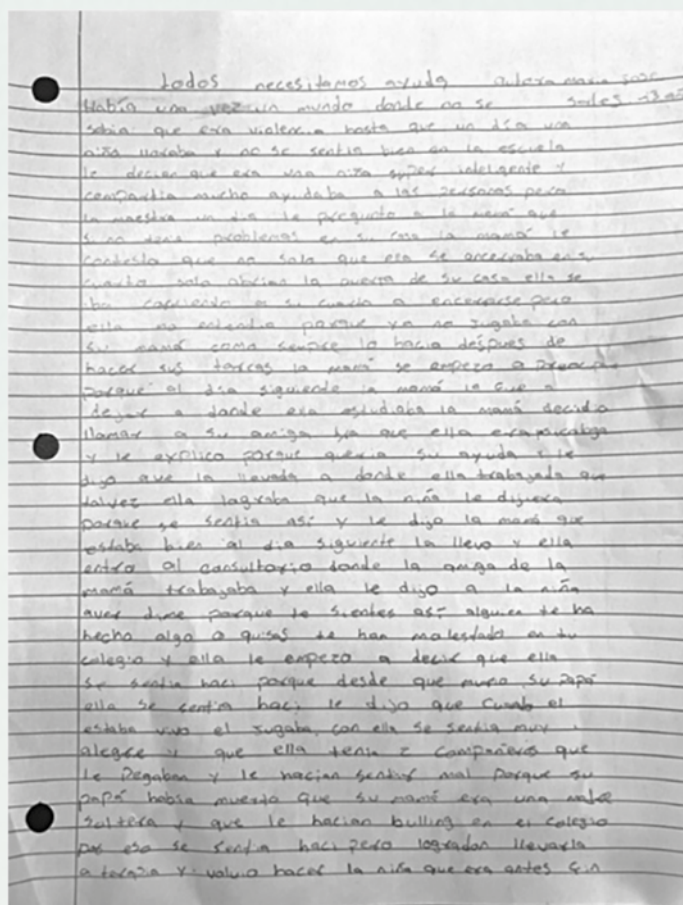 todos necesitamos ayuda maria jose
Había una vez un mundo donde no se
sabia que era violencia hasta que un día una
niña lloraba y no se sentia bien en la escuela
le decian que era una niña super inteligente y
compartia mucho ayudaba a las personas pero
la maestra un dia le pregunto a la mamá que
si no tenia problemas en su casa la mamá le
contesto que no solo que ella se encerraba en su
cuarto solo abrian la puerta de su casa ella se
iba corriendo a su cuarto a encerrarse pero
ella no entendia porque ya no jugaba con
su mamá como siempre lo hacia despues de
hacer sus tareas la mamá se empezo a
porque al dia siguiente la mamá la fue a
dejar a donde ella estudiaba la mamá decidio
llamar a su amiga que ella era
y le explico porque queria su ayuda y le
dijo que la llevada a donde ella trabajada que
talvez ella lograba que la niña le dijiera
porque se sentia así y le dijo la mamá que
estaba bien al dia siguiente la llevo y ella
entro al consultorio donde la amiga de la
mamá trabajaba y ella le dijo a la niña
aver dime porque te sientes así alguien te ha
hecho algo o quisas te han molestado en tu
colegio y ella le empezo a decir que ella
se sentia haci porque desde que murio su papá
ella se sentia haci le dijo que cuando el
estaba vivo el jugaba con ella se sentia muy
alegre y que ella tenia 2 compañeros que
le pegaban y le hacian sentir mal porque su
papá había muerto que su mamá era una madre
soltera y que le hacian bulling en el colegio
por eso se sentia haci pero logradon llevarla
a terapia y volvio hacer la niña que era antes fin